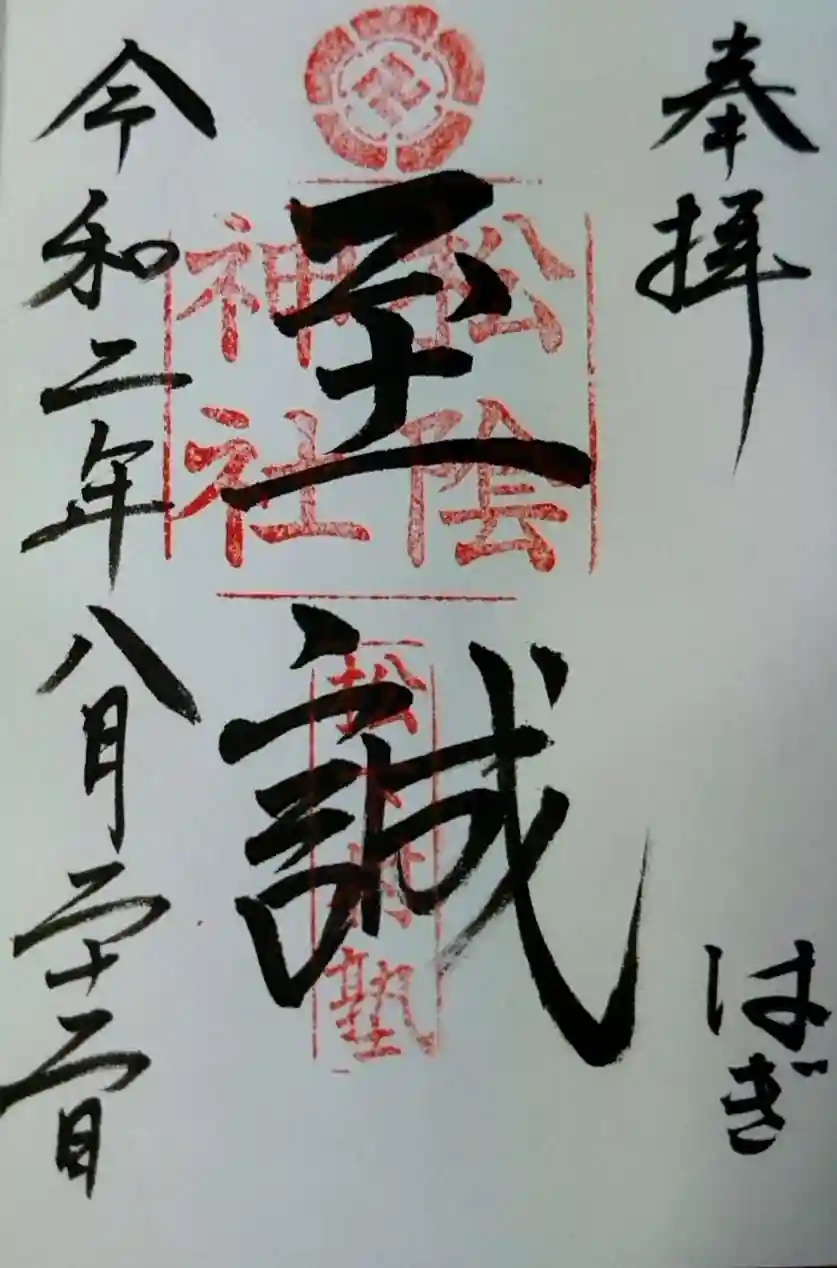 奉拝
はぎ
松陰
神社
至誠
松下村塾
令和二年八月二十二日